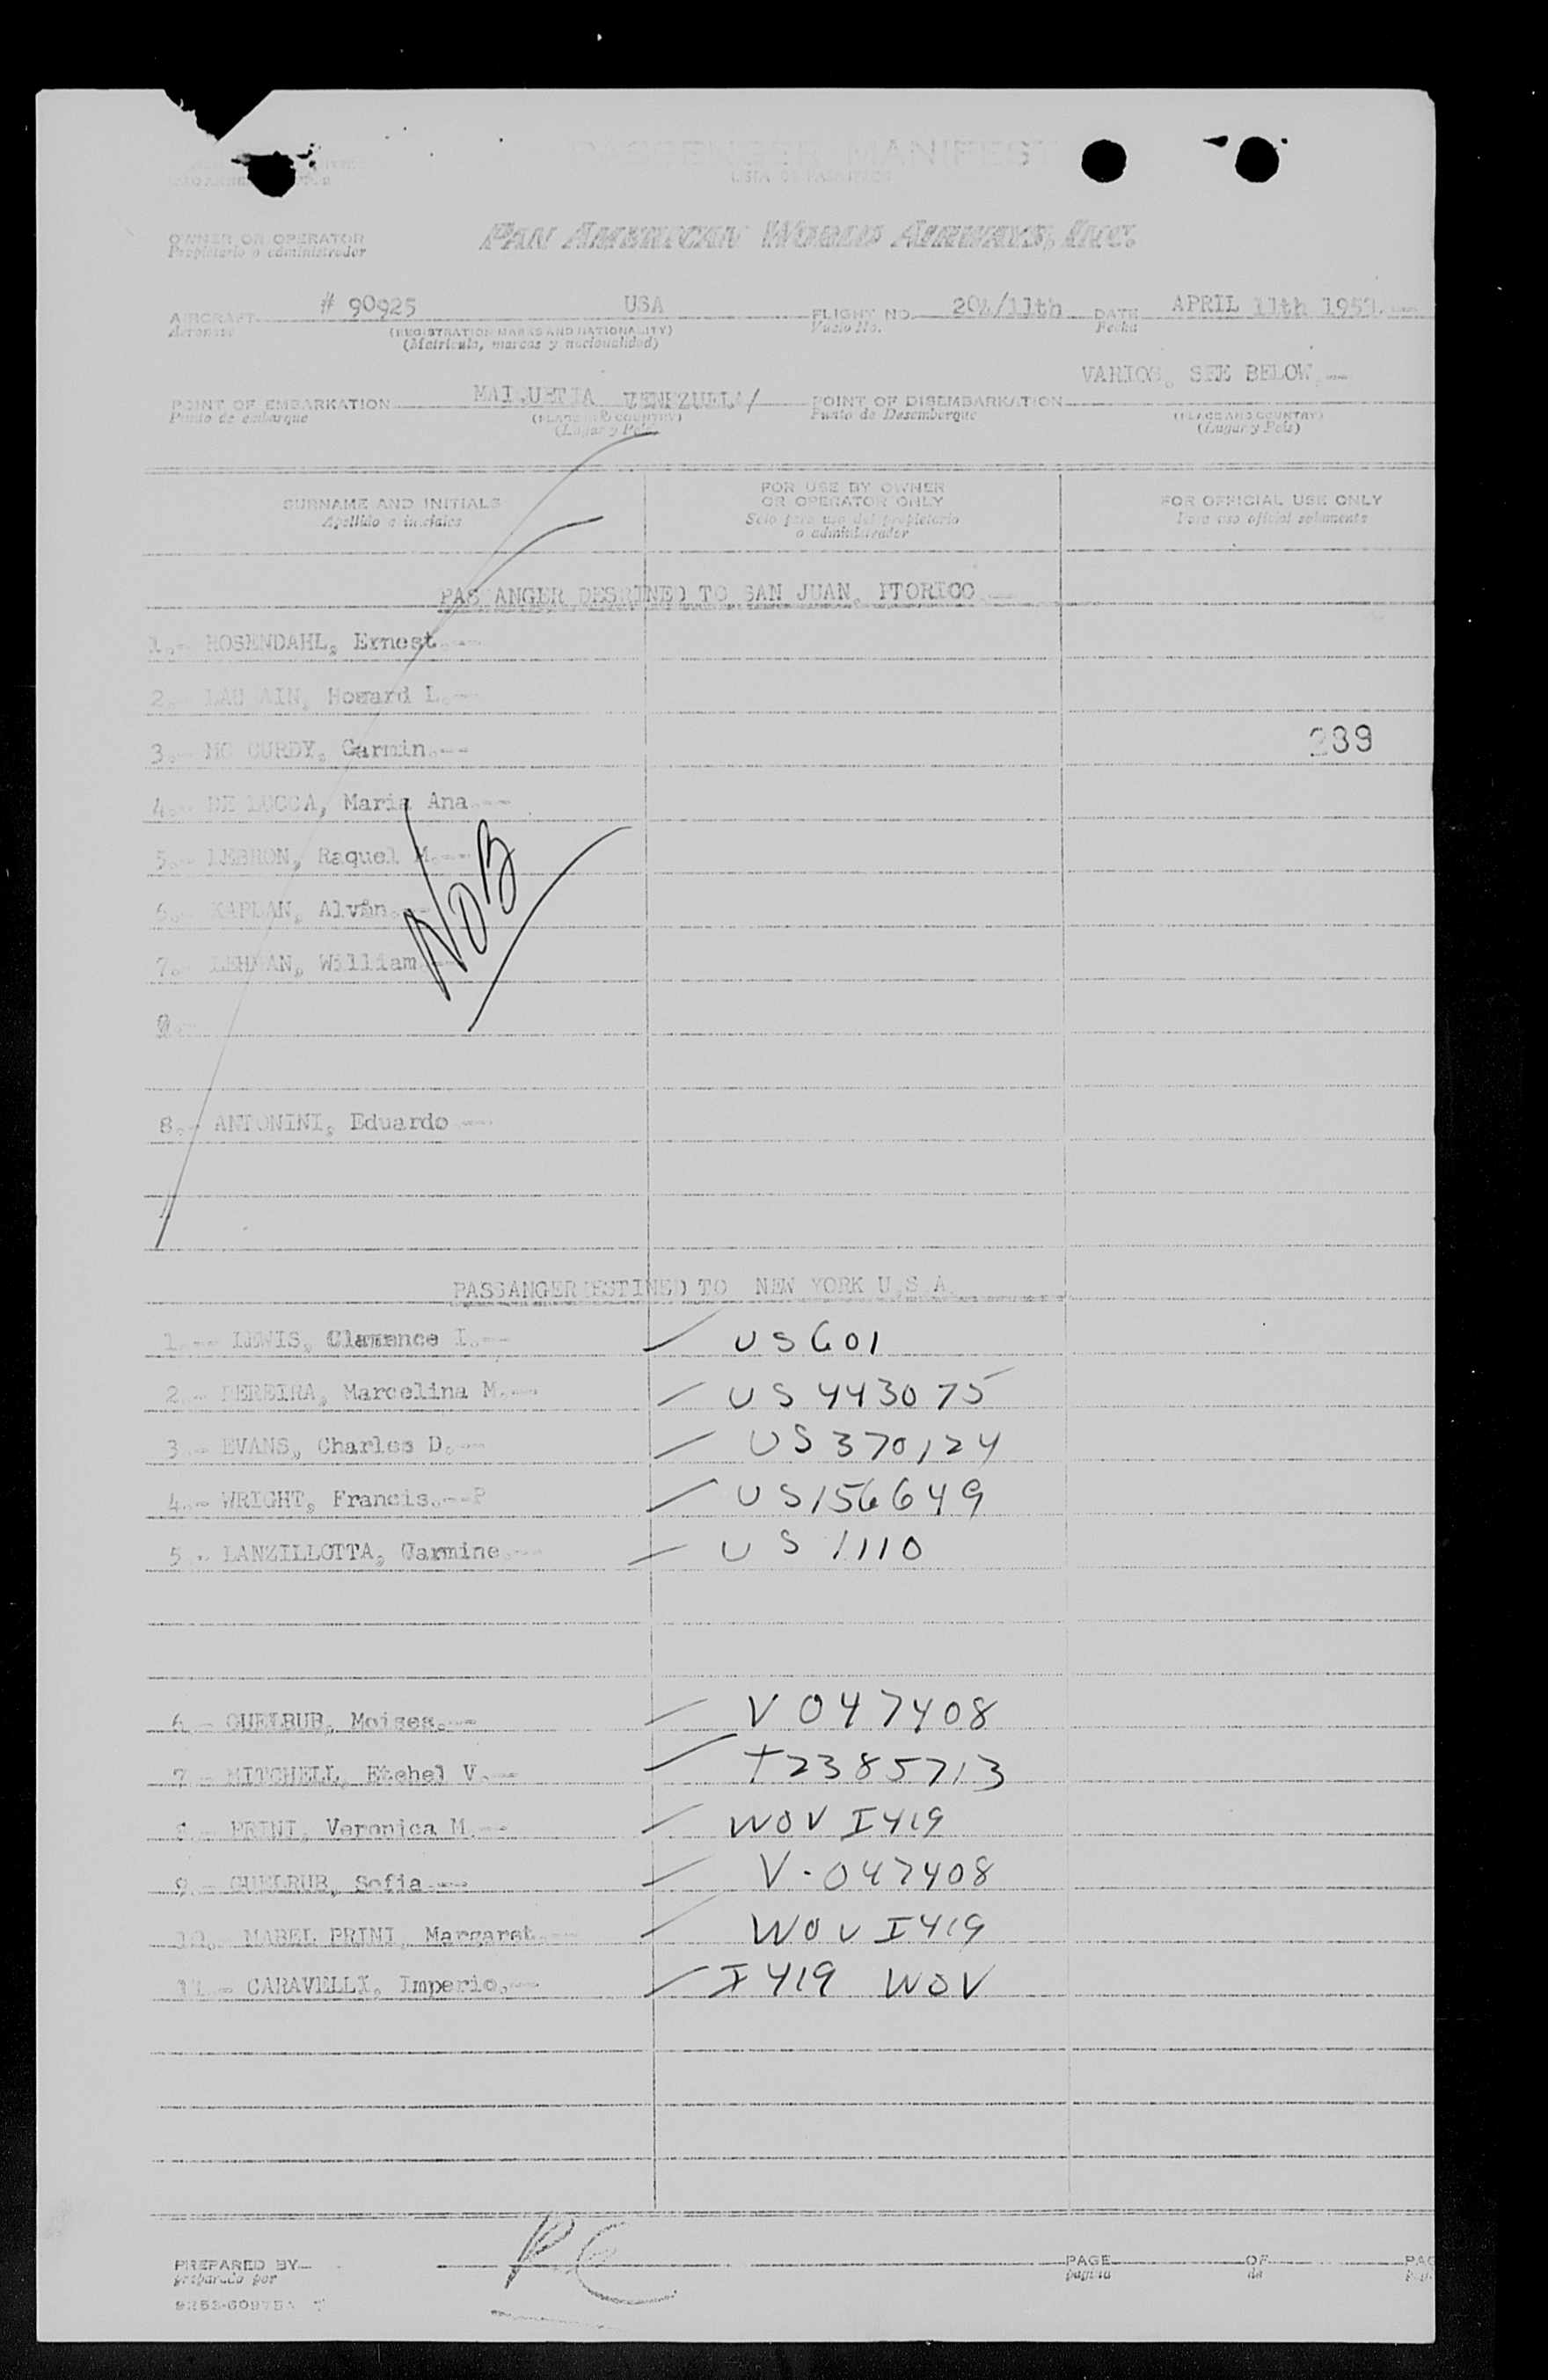 PASSENGER MANIFEST
LISTA DE PASAJEROS
OWNER OR OPERATOR
Propietario o administrador
PAN AMERICAN WORLD AIRWAYS, INC.
AIRCRAFT # 90925 USA FLIGHT NO. 204/11th DATE APRIL 11th 1953.
Aeronave (REGISTRATION MARKS AND NATIONALITY) Vuelo No. Fecha
(Matricula, marcas y nacionalidad)
VARIOS, SEE BELOW.--
POINT OF EMBARKATION MAIQUETIA VENEZUELA/ POINT OF DISEMBARKATION
Punto de embarque (PLACE AND COUNTRY) Punto de Desembarque (PLACE AND COUNTRY)
(Lugar y País) (Lugar y País)
SURNAME AND INITIALS
Apellido e iniciales
FOR USE BY OWNER
OR OPERATOR ONLY
Solo para uso del propietario
o administrador
FOR OFFICIAL USE ONLY
Para uso oficial solamente
PASSANGER DESTINED TO SAN JUAN, PTORICO.--
1.- ROSENDAHL, Ernest.--
2.- Howard L.--
3.- MC CURDY, Garmin.--
239
4.- DE LUCCA, Maria Ana.--
5.- LEBRON, Raquel M.--
6.- KAPLAN, Alván.--
7.- LEHMAN, William.--
NOB
8.- ANTONINI, Eduardo.--
PASSANGER DESTINED TO NEW YORK U.S.A.
1.-- LEWIS, Clarence I.-- US601
2.- PEREIRA, Marcelina M.-- US 443075
3.- EVANS, Charles D.-- US370124
4.- WRIGHT, Francis.--P US156649
5.- LANZILLOTTA, Carmine.-- US 1110
6.- GUELRUB, Moises.-- V 047408
7.- MITCHELL, Etehel V.-- T2385713
8.- PRINI, Veronica M.-- WOV I419
9.- GUELRUB, Sofia.-- V-047408
10. MABEL PRINI, Margaret.-- WOV I419
11.- CARAVELLI, Imperio.-- I419 WOV
PREPARED BY RC PAGE OF PAG
preparado por pagina de